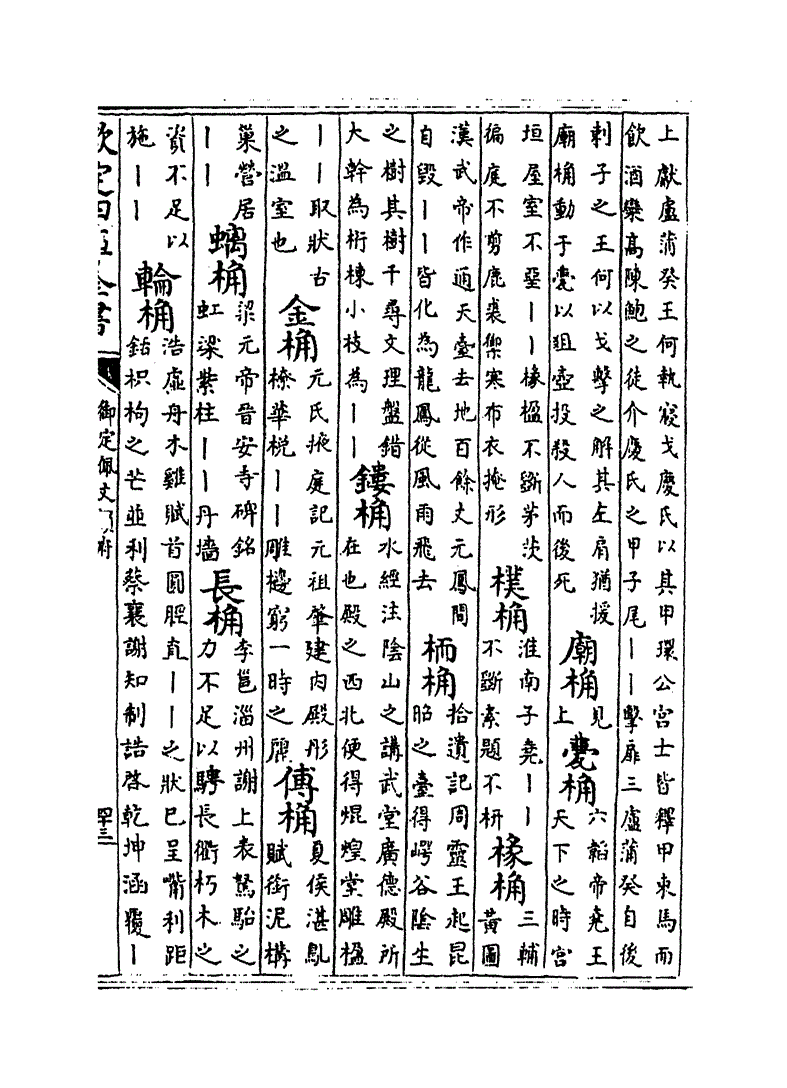 上獻盧蒲癸王何執寢戈慶氏以其甲環公宮士皆釋甲束馬而
飲酒欒高陳鮑之徒介慶氏之甲子尾丨丨擊扉三盧蒲癸自後
刺子之王何以戈擊之解其左肩猶援
廟桷動于甍以俎壺投殺人而後死
廟桷
見
上
甍桷
六韜帝堯王
天下之時宮
垣屋室不堊丨丨椽楹不斲茅茨
徧庭不剪鹿裘禦寒布衣掩形
樸桷
淮南子堯丨丨
不斲素題不枅
椽桷
三輔
黃圖
漢武帝作通天臺去地百餘丈元鳳間
自毀丨丨皆化為龍鳳從風雨飛去
栭桷
拾遺記周靈王起昆
昭之臺得崿谷陰生
之樹其樹千尋文理盤錯
大幹為桁棟小枝為丨丨
鏤桷
水經注陰山之講武堂廣德殿所
在也殿之西北便得焜煌堂雕楹
丨丨取狀古
之溫室也
金桷
元氏掖庭記元祖肇建內殿彤
橑華棁丨丨雕楹窮一時之麗
傅桷
夏侯湛鳦
賦銜泥構
巢營居
丨丨
螭桷
梁元帝晉安寺碑銘
虹梁紫柱丨丨丹墻
長桷
李邕淄州謝上表駑駘之
力不足以騁長衢朽木之
資不足以
施丨丨
輪桷
浩虛舟木雞賦首圓脛直丨丨之狀已呈觜利距
銛枳枸之芒並利蔡襄謝知制誥啓乾坤涵覆丨
欽定四庫全書
御定佩文韻府
四十三